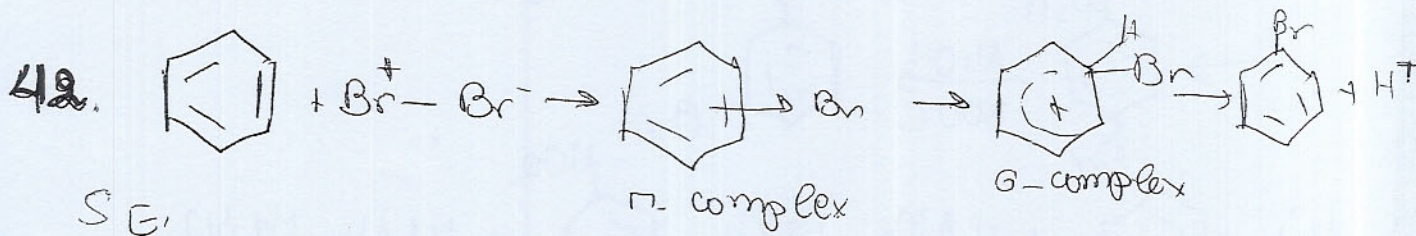 42. + Br⁺ — Br⁻ → → Br → H Br → Br + H⁺
π- complex
σ-complex
SE,